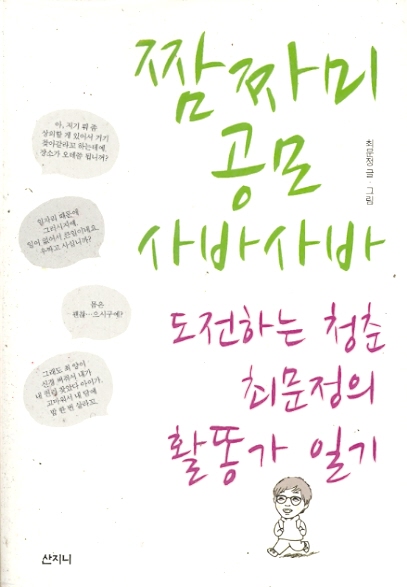 짬짜미
공모
사바사바
최문정 글·그림
도전하는 청춘
최문정의
활똥가 일기
아, 저기 뭐 좀
상의할 게 있어서 거기
찾아갈라고 하는데예,
장소가 오데쯤 됩니꺼?
일자리 때문에
그러시지예,
일이 없어서 큰일이네요.
우짜고 사십니까?
몸은
괜찮…으시구예?
그래도 최 양이
신경 써줘서 내가
내 편을 찾았다 아이가.
고마워서 내 담에
밥 한 번 살라고.
산지니